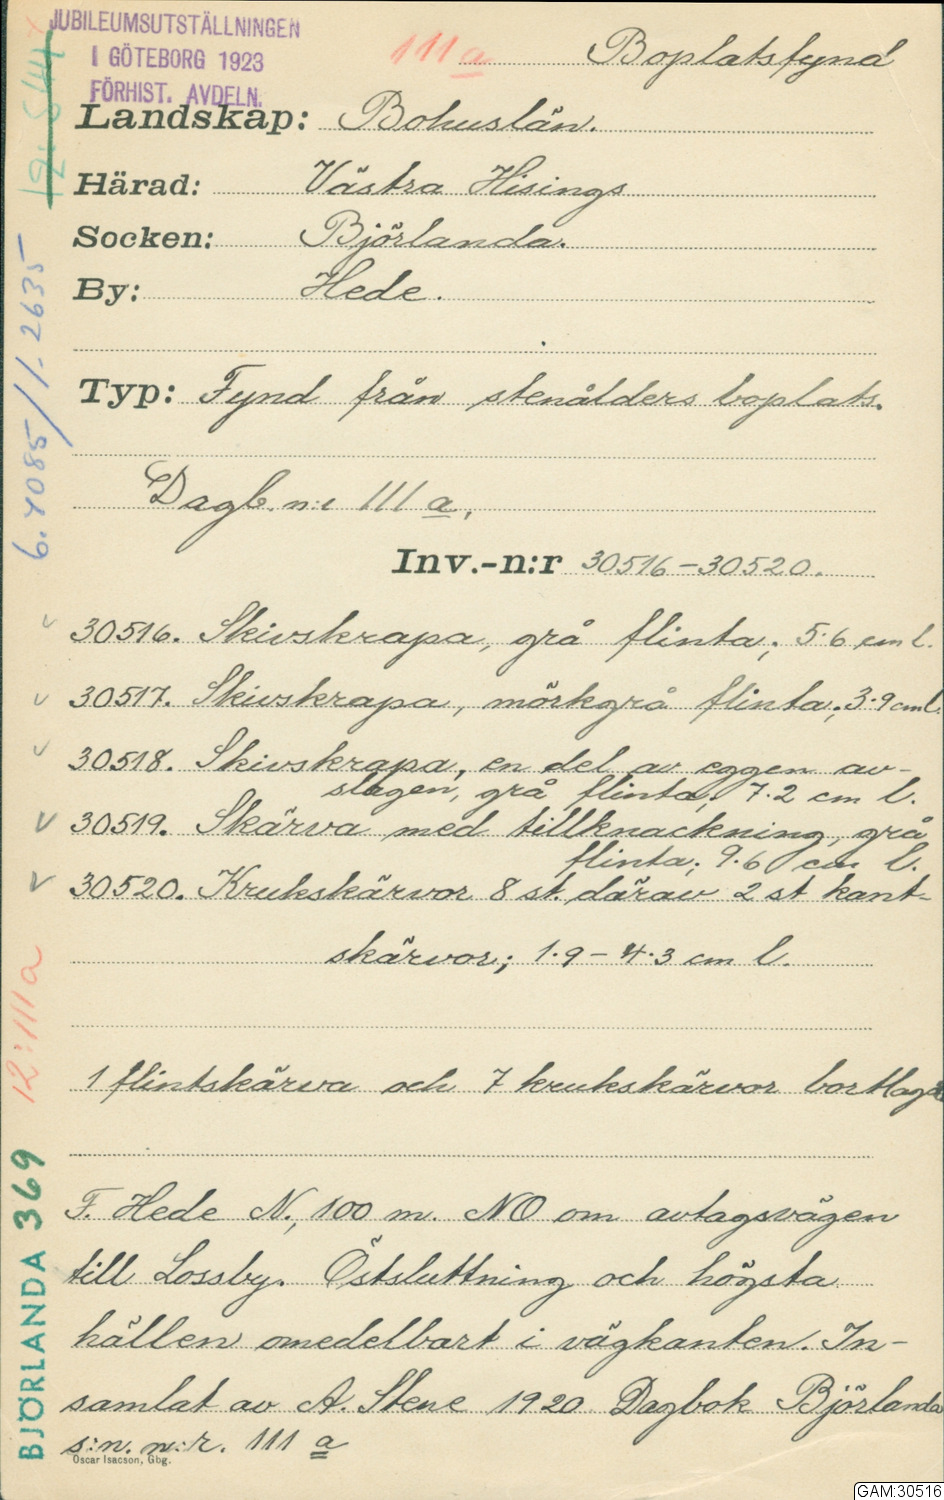 JUBILEUMSUTSTÄLLNINGEN
I GÖTEBORG 1923
FÖRHIST. AVDELN.
111 a
Boplatsfynd
Landskap: Bohuslän.
Härad: Västra Hisings
Socken: Björlanda.
By: Hede.
Typ: Fynd från stenålders boplats.
Dagb. n:r 111 a,
Inv.-n:r 30516-30520.
30516. Skivskrapa, grå flinta; 5.6 cm l.
30517. Skivskrapa, mörkgrå flinta; 3.9 cm l.
30518. Skivskrapa, en del av eggen av-
slagen, grå flinta; 7.2 cm l.
30519. Skärva med tillknackning, grå
flinta; 9.6 cm l.
30520. Krukskärvor 8 st. därav 2 st kant-
skärvor; 1.9 - 4.3 cm l.
1 flintskärva och 7 krukskärvor
F. Hede N., 100 m. NO om avtagsvägen
till Lossby. Östsluttning och högsta
hällen omedelbart i vägkanten. In-
samlat av A. Stene 1920. Dagbok Björlanda
s:n. n:r. 111 a
Oscar Isacson, Gbg.
12:111a
BJÖRLANDA 369
GAM:30516